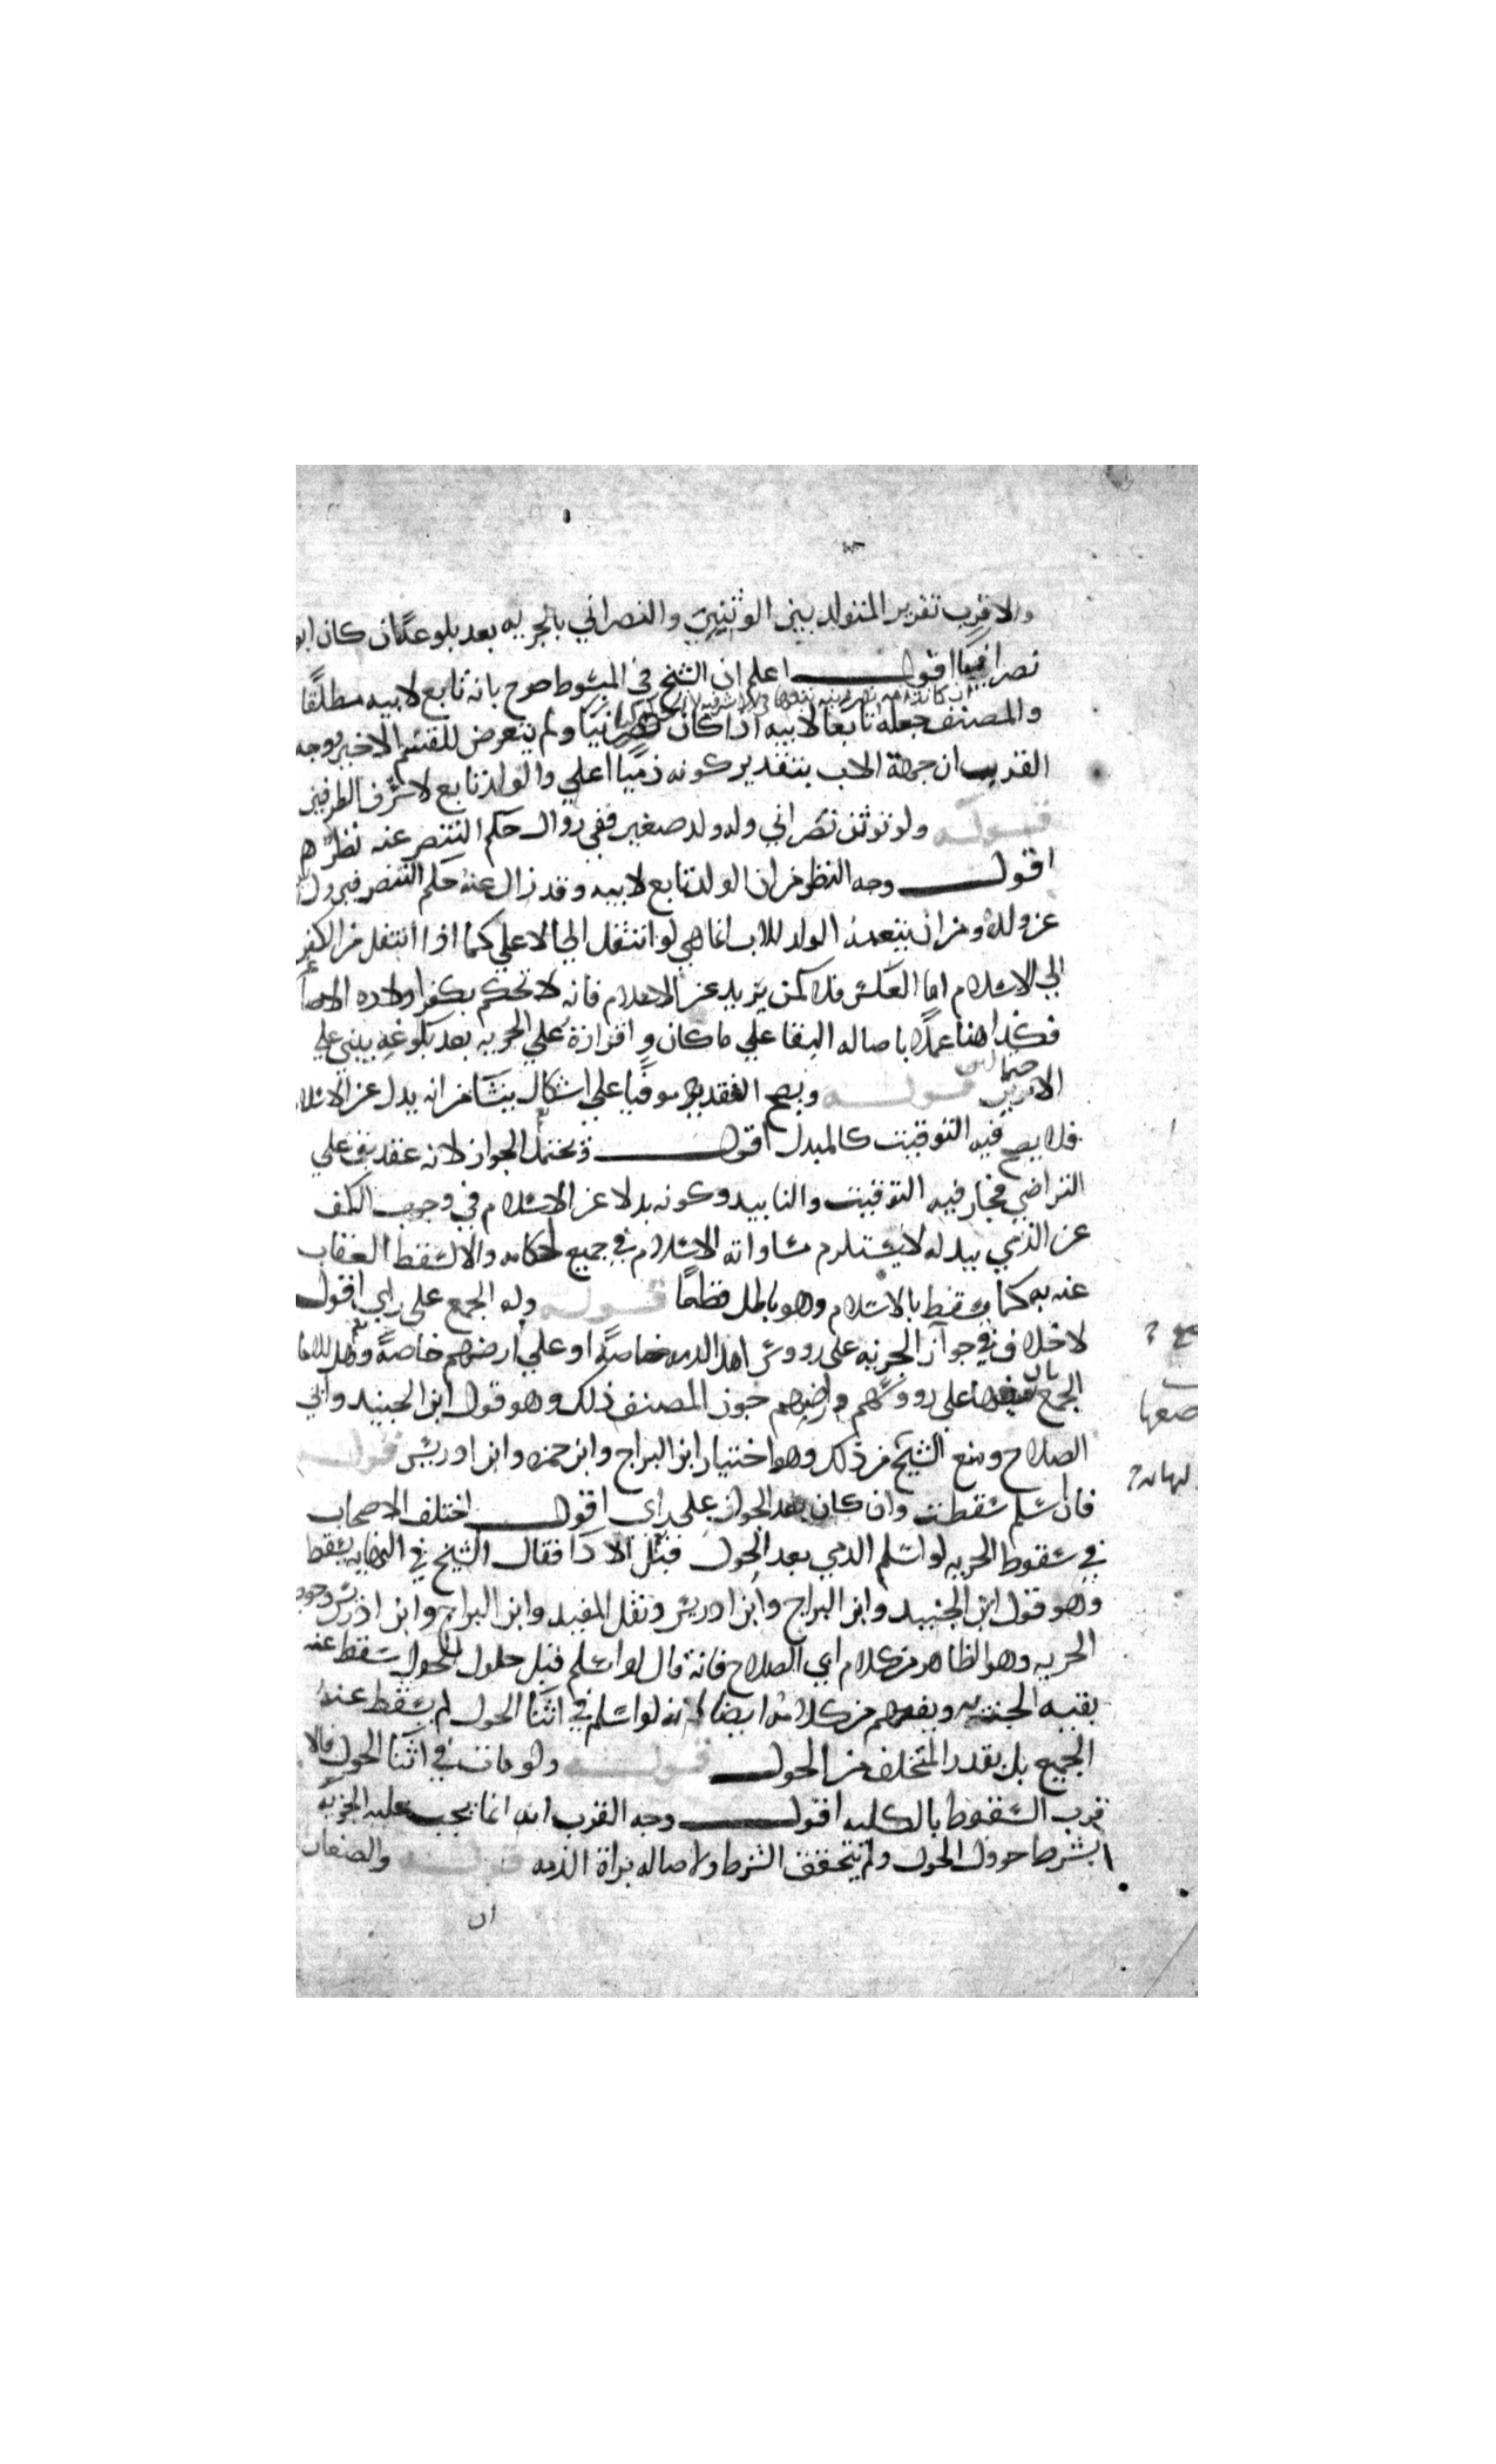 والاقرب تقرير المتولد بين الوثنيين والنصراني بالجزيه بعد بلوغه ان كان ابو
نصرانيا اقول اعلم ان الشيخ في المبسوط صرح بانه تابع لابيه مطلقًا
والمصنف جعله تابعًا لابيه اذا كان نصرانيًا ولم يتعرض للقسم الاخير ووجه
القرب ان جهة الاب بتقدير كونه ذميًا اعلي والولد تابع لاشرف الطرفين
قوله ولو توثن نصراني وله ولد صغير ففي زوال حكم التنصر عنه نظر
اقول وجه النظر من ان الولد تابع لابيه وقد زال عنه حكم التنصر فيزول
عن ولده ومن ان تبعية الولد للاب انما هي لو انتقل الي الاعلي كما اذا انتقل من الكفر
الي الاسلام اما العكس فلا كمن يرتد عن الاسلام فانه لا نحكم بكفر اولاده الاصاغر
فكذا هنا عملا باصاله البقا علي ما كان واقراره علي الجزيه بعد بلوغه يبني علي
الاحتمالين قوله ويصح العقد موقتًا علي اشكال ينشا من انه بدل عن الاسلام
فلا يصح فيه التوقيت كالمبدل اقول ويحتمل الجواز لانه عقد يقف علي
التراضي فجاز فيه التوقيت والتابيد وكونه بدلا عن الاسلام في وجوب الكف
عن الذمي ببدله لا يستلزم مساواته الاسلام في جميع احكامه والا لسقط العقاب
عنه به كما يسقط بالاسلام وهو باطل قطعًا قوله وله الجمع على راي اقول
لا خلاف في جواز الجزيه على رووس اهل الذمه خاصةً او علي ارضهم خاصةً وهل للامام
الجمع بان يضعها على رووسهم وارضهم جوز المصنف ذلك وهو قول ابن الجنيد وابي
الصلاح ومنع الشيخ من ذلك وهو اختيار ابن البراج وابن حمزه وابن ادريس قوله
فان اسلم سقطت وان كان بعد الحول على راي اقول اختلف الاصحاب
في سقوط الجزيه لو اسلم الذمي بعد الحول قبل الادا فقال الشيخ في النهايه يسقط
وهو قول ابن الجنيد وابن البراج وابن ادريس ونقل المفيد وابن البراج وابن ادريس وجوب
الجزيه وهو الظاهر من كلام ابي الصلاح فانه قال لو اسلم قبل حلول الحول سقط عنه
بقيه ويفهم من كلامه ايضا انه لو اسلم في اثنا الحول لم يسقط عنه
الجميع بل بقدر المتخلف من الحول قوله ولو مات في اثنا الحول فالا
قرب السقوط بالكليه اقول وجه القرب انه انما يجب عليه الجزيه
بشرط حوول الحول ولم يتحقق الشرط ولاصاله براة الذمه قوله والصغار
ان